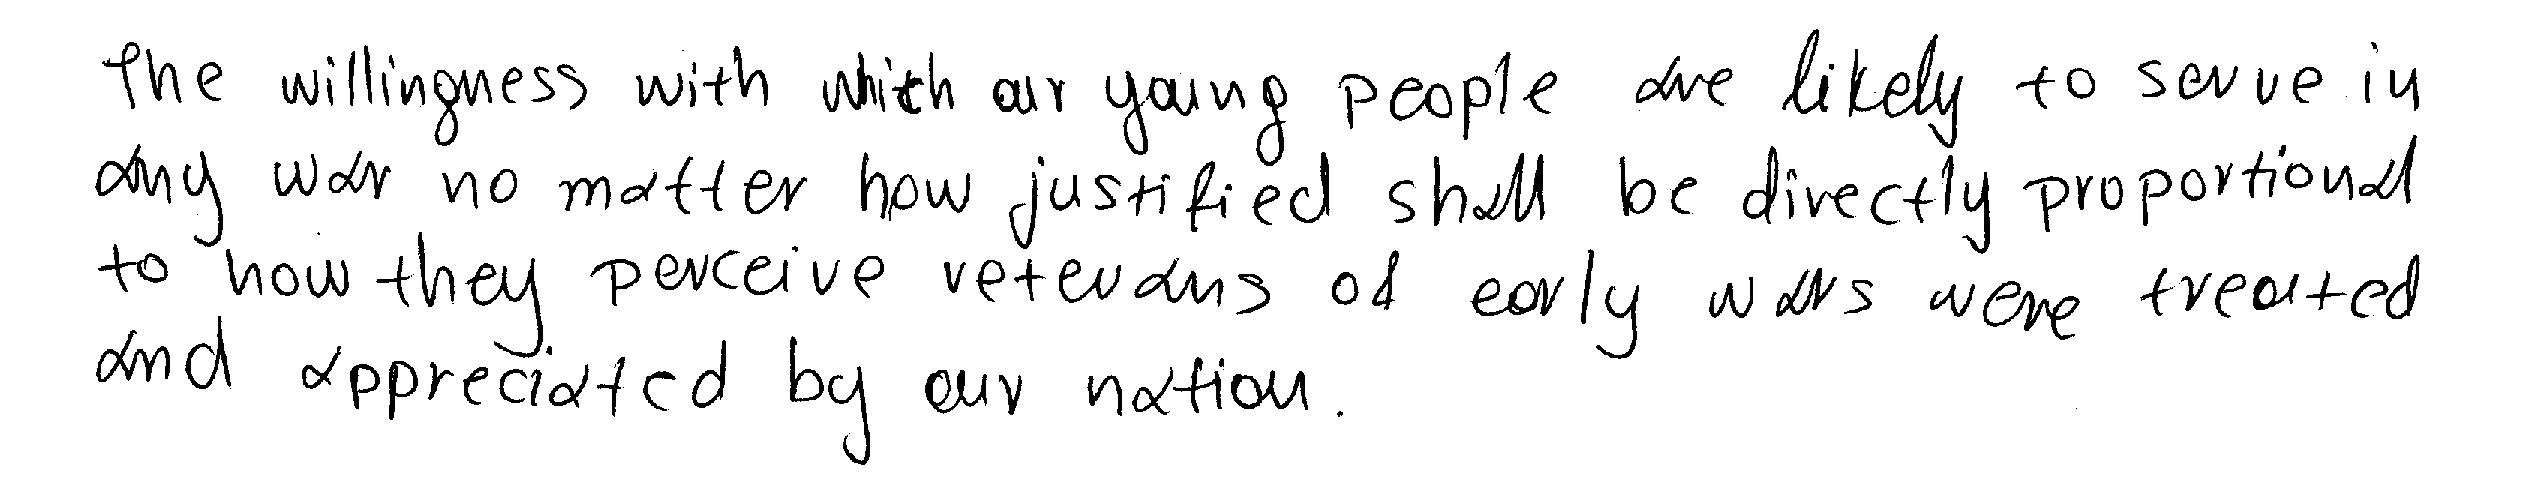 The willingness with which our young people are likely to serve in
any war no matter how justified shall be directly proportional
to how they perceive veterans of early wars were treated
and appreciated by our nation.